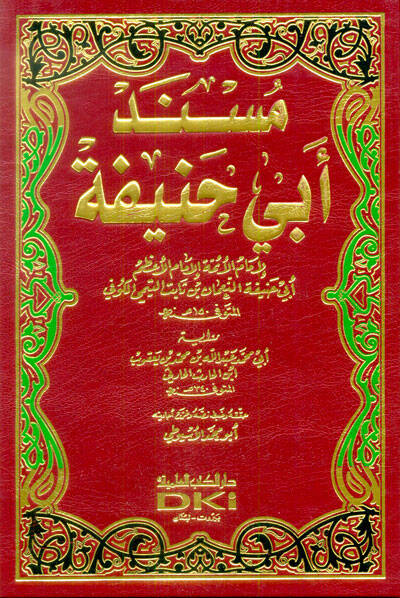 مُسْنَد
أَبي حَنِيفَة
لإمام الأئمة الإمام الأعظم
أبي حنيفة النعمان بن ثابت التيمي الكوفي
المتوفى ١٥٠ هـ
رواية
أبي محمد عبد الله بن محمد بن يعقوب
ابن الحارث الحارثي
المتوفى ٣٤٠ هـ
حققه وضبط نصه وخرج أحاديثه
أبو محمد الأسيوطي
دار الكتب العلمية
DKi
بيروت - لبنان